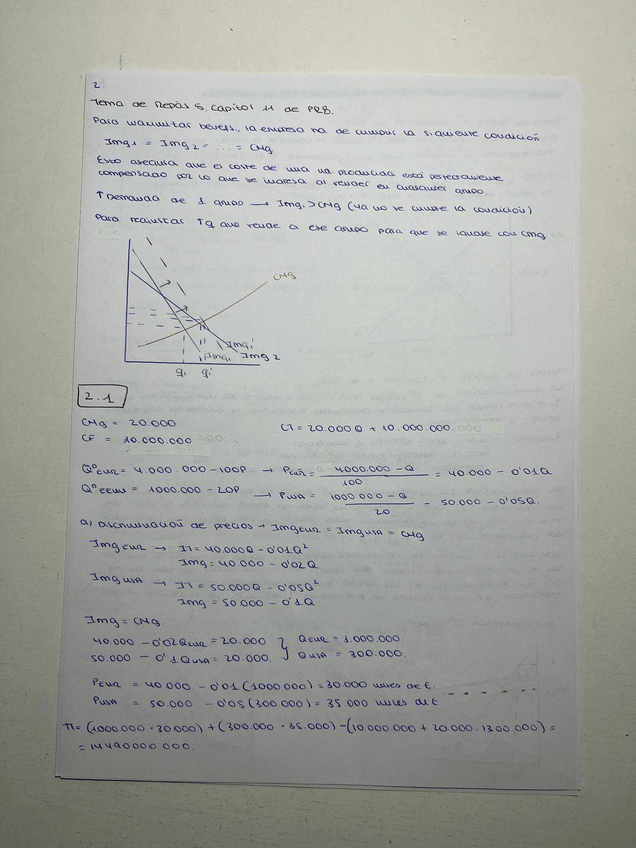 2.
Tema de Repàs 5, capítol 11 de PR8.
Para maximitar benefs., la empresa ha de cumplir la siguiente condición
Img1 = Img2 = ... = CMg
Esto asegura que el coste de una ud producida está perfectamente
compensado por lo que se ingresa al vender en cualquier grupo.
↑ Demanda de 1 grupo → Img1 > CMg (ya no se cumple la condición)
Para reajustar ↑q que vende a ese grupo para que se iguale con CMg.
CMg
Img1'
Img1 Img2
q1 q1'
2.1
CMg = 20.000 CT = 20.000Q + 10.000.000.000
CF = 10.000.000
QD EUR = 4.000.000 - 100P → PEUR = 4000.000 - Q / 100 = 40.000 - 0'01Q
QD EEUU = 1000.000 - 20P → PUSA = 1000.000 - Q / 20 = 50.000 - 0'05Q.
a) Discriminación de precios → ImgEUR = ImgUSA = CMg
ImgEUR → IT = 40.000Q - 0'01Q²
Img = 40.000 - 0'02Q
ImgUSA → IT = 50.000Q - 0'05Q²
Img = 50.000 - 0'1Q
Img = CMg.
40.000 - 0'02QEUR = 20.000 } QEUR = 1000.000
50.000 - 0'1QUSA = 20.000. } QUSA = 300.000.
PEUR = 40.000 - 0'01 (1000.000) = 30.000 miles de €
PUSA = 50.000 - 0'05 (300.000) = 35.000 miles de €
π = (1000.000 · 30.000) + (300.000 · 35.000) - (10.000.000 + 20.000 · 1300.000) =
= 14490000 000.